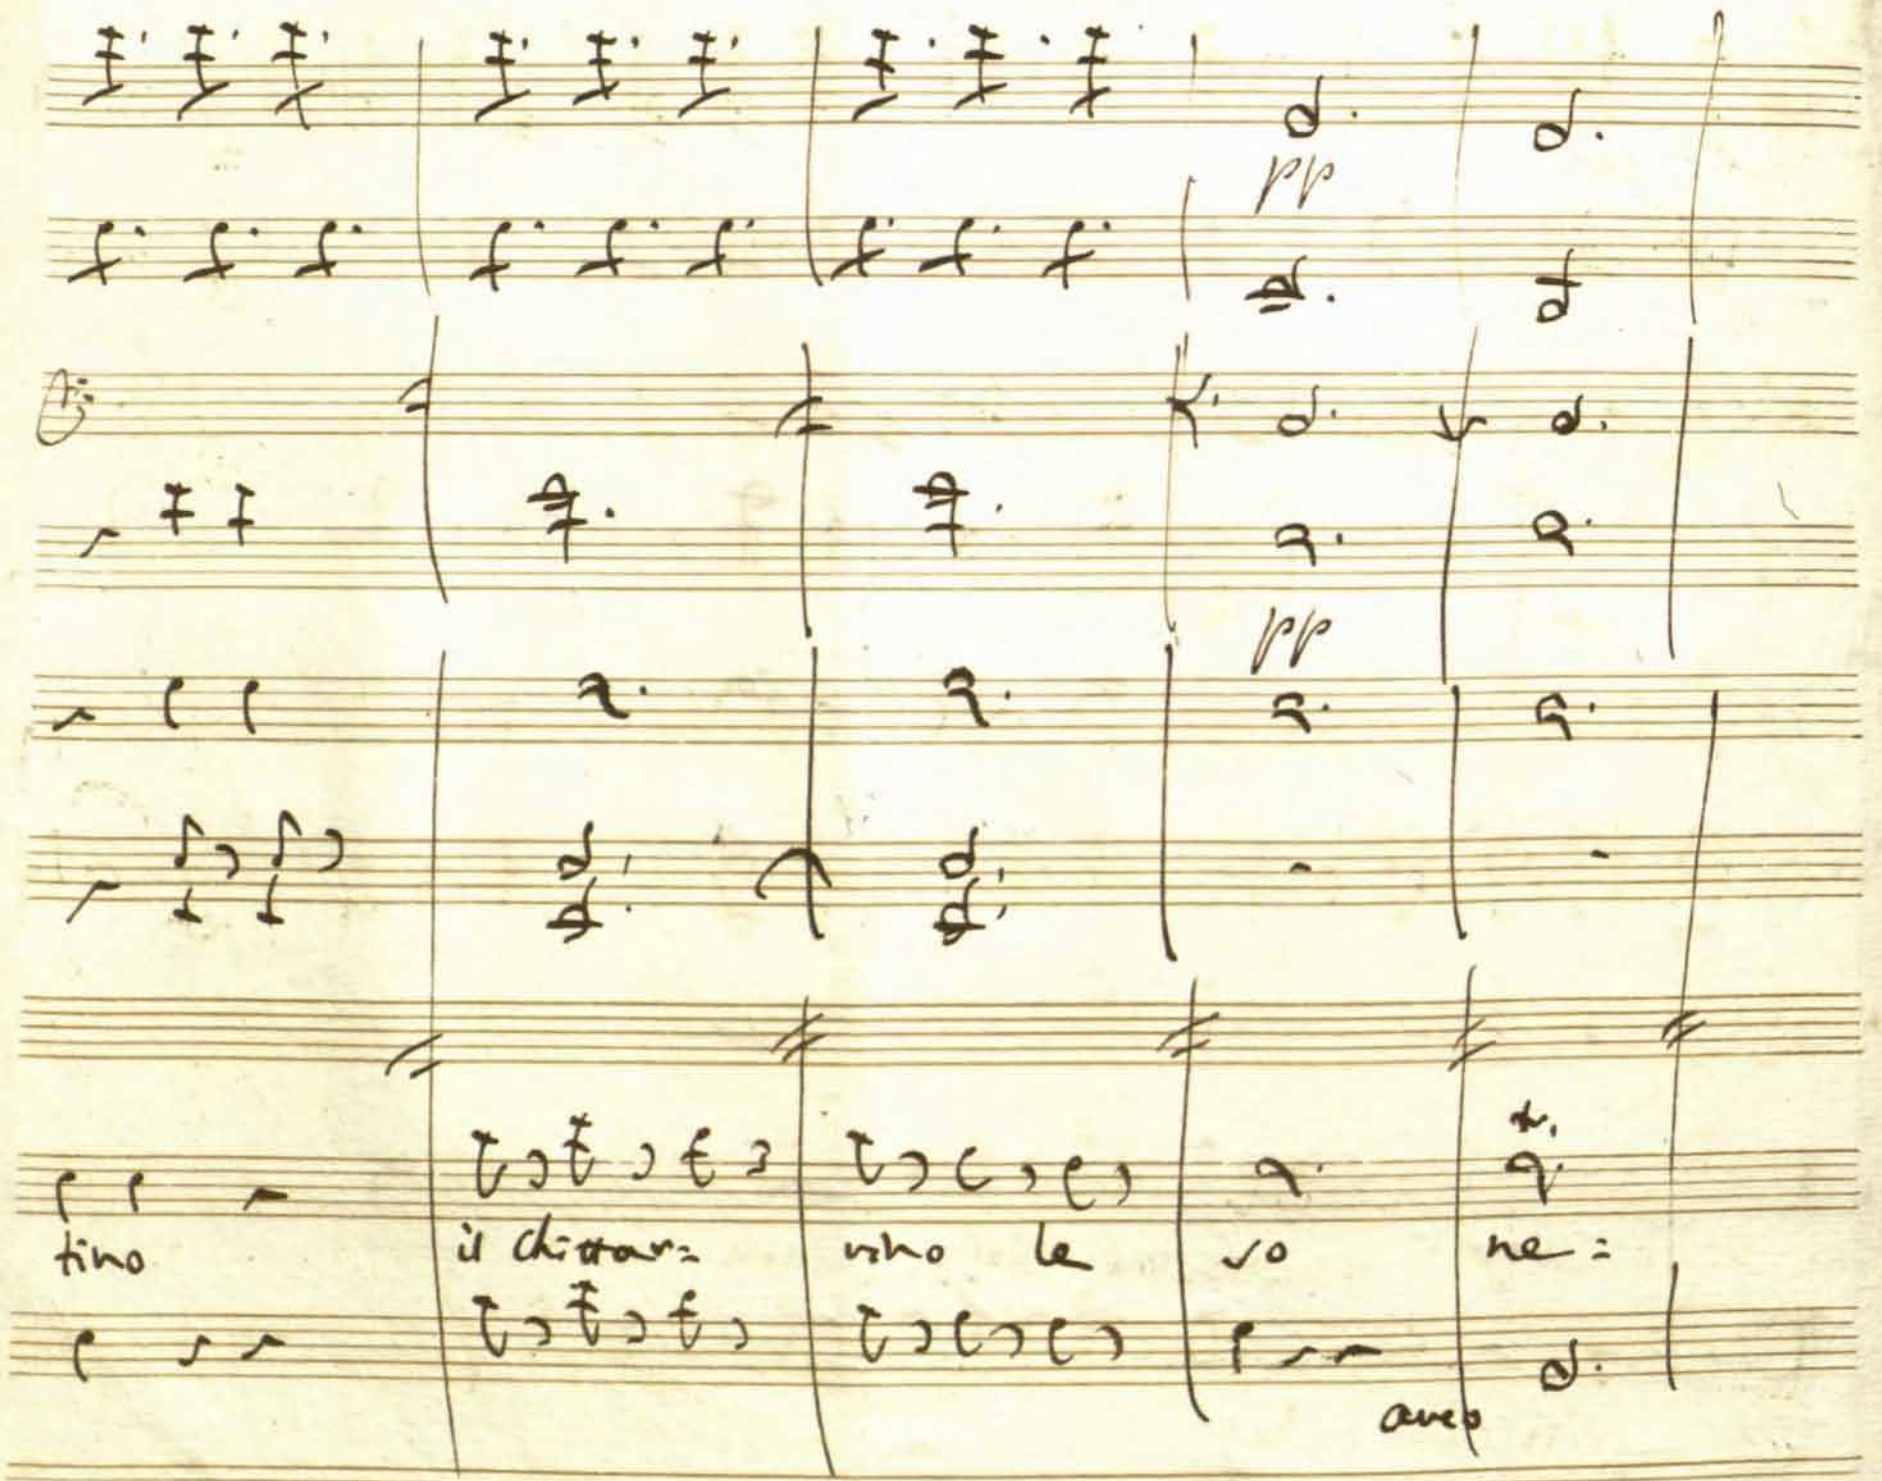 pp
pp
tr.
tino il chitar= rino le so ne=
arco